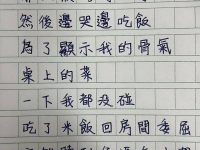 然後邊哭邊吃飯
為了顯示我的骨氣
桌上的菜
一下我都没碰
吃了米飯回房間委屈